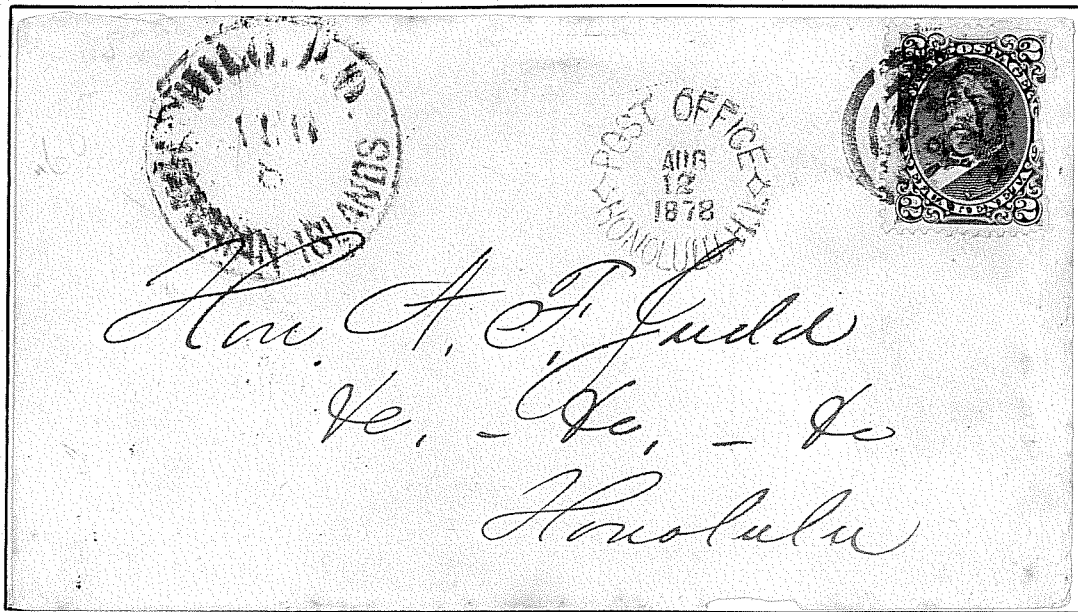 HILO. P. O.
HAWAIIAN ISLANDS
POST OFFICE
AUG
12
1878
HONOLULU H.I.
Hon. A. F. Judd
&c, - &c, - &c
Honolulu